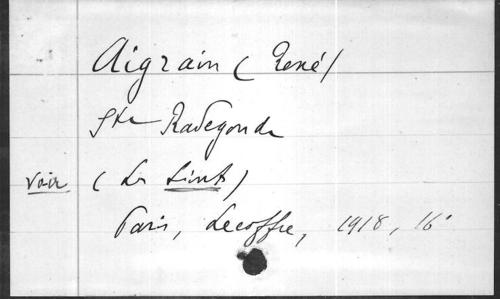 Aigrain (René)
Ste Radegonde
voir (Les Saints)
Paris, Lecoffre, 1918, 16°